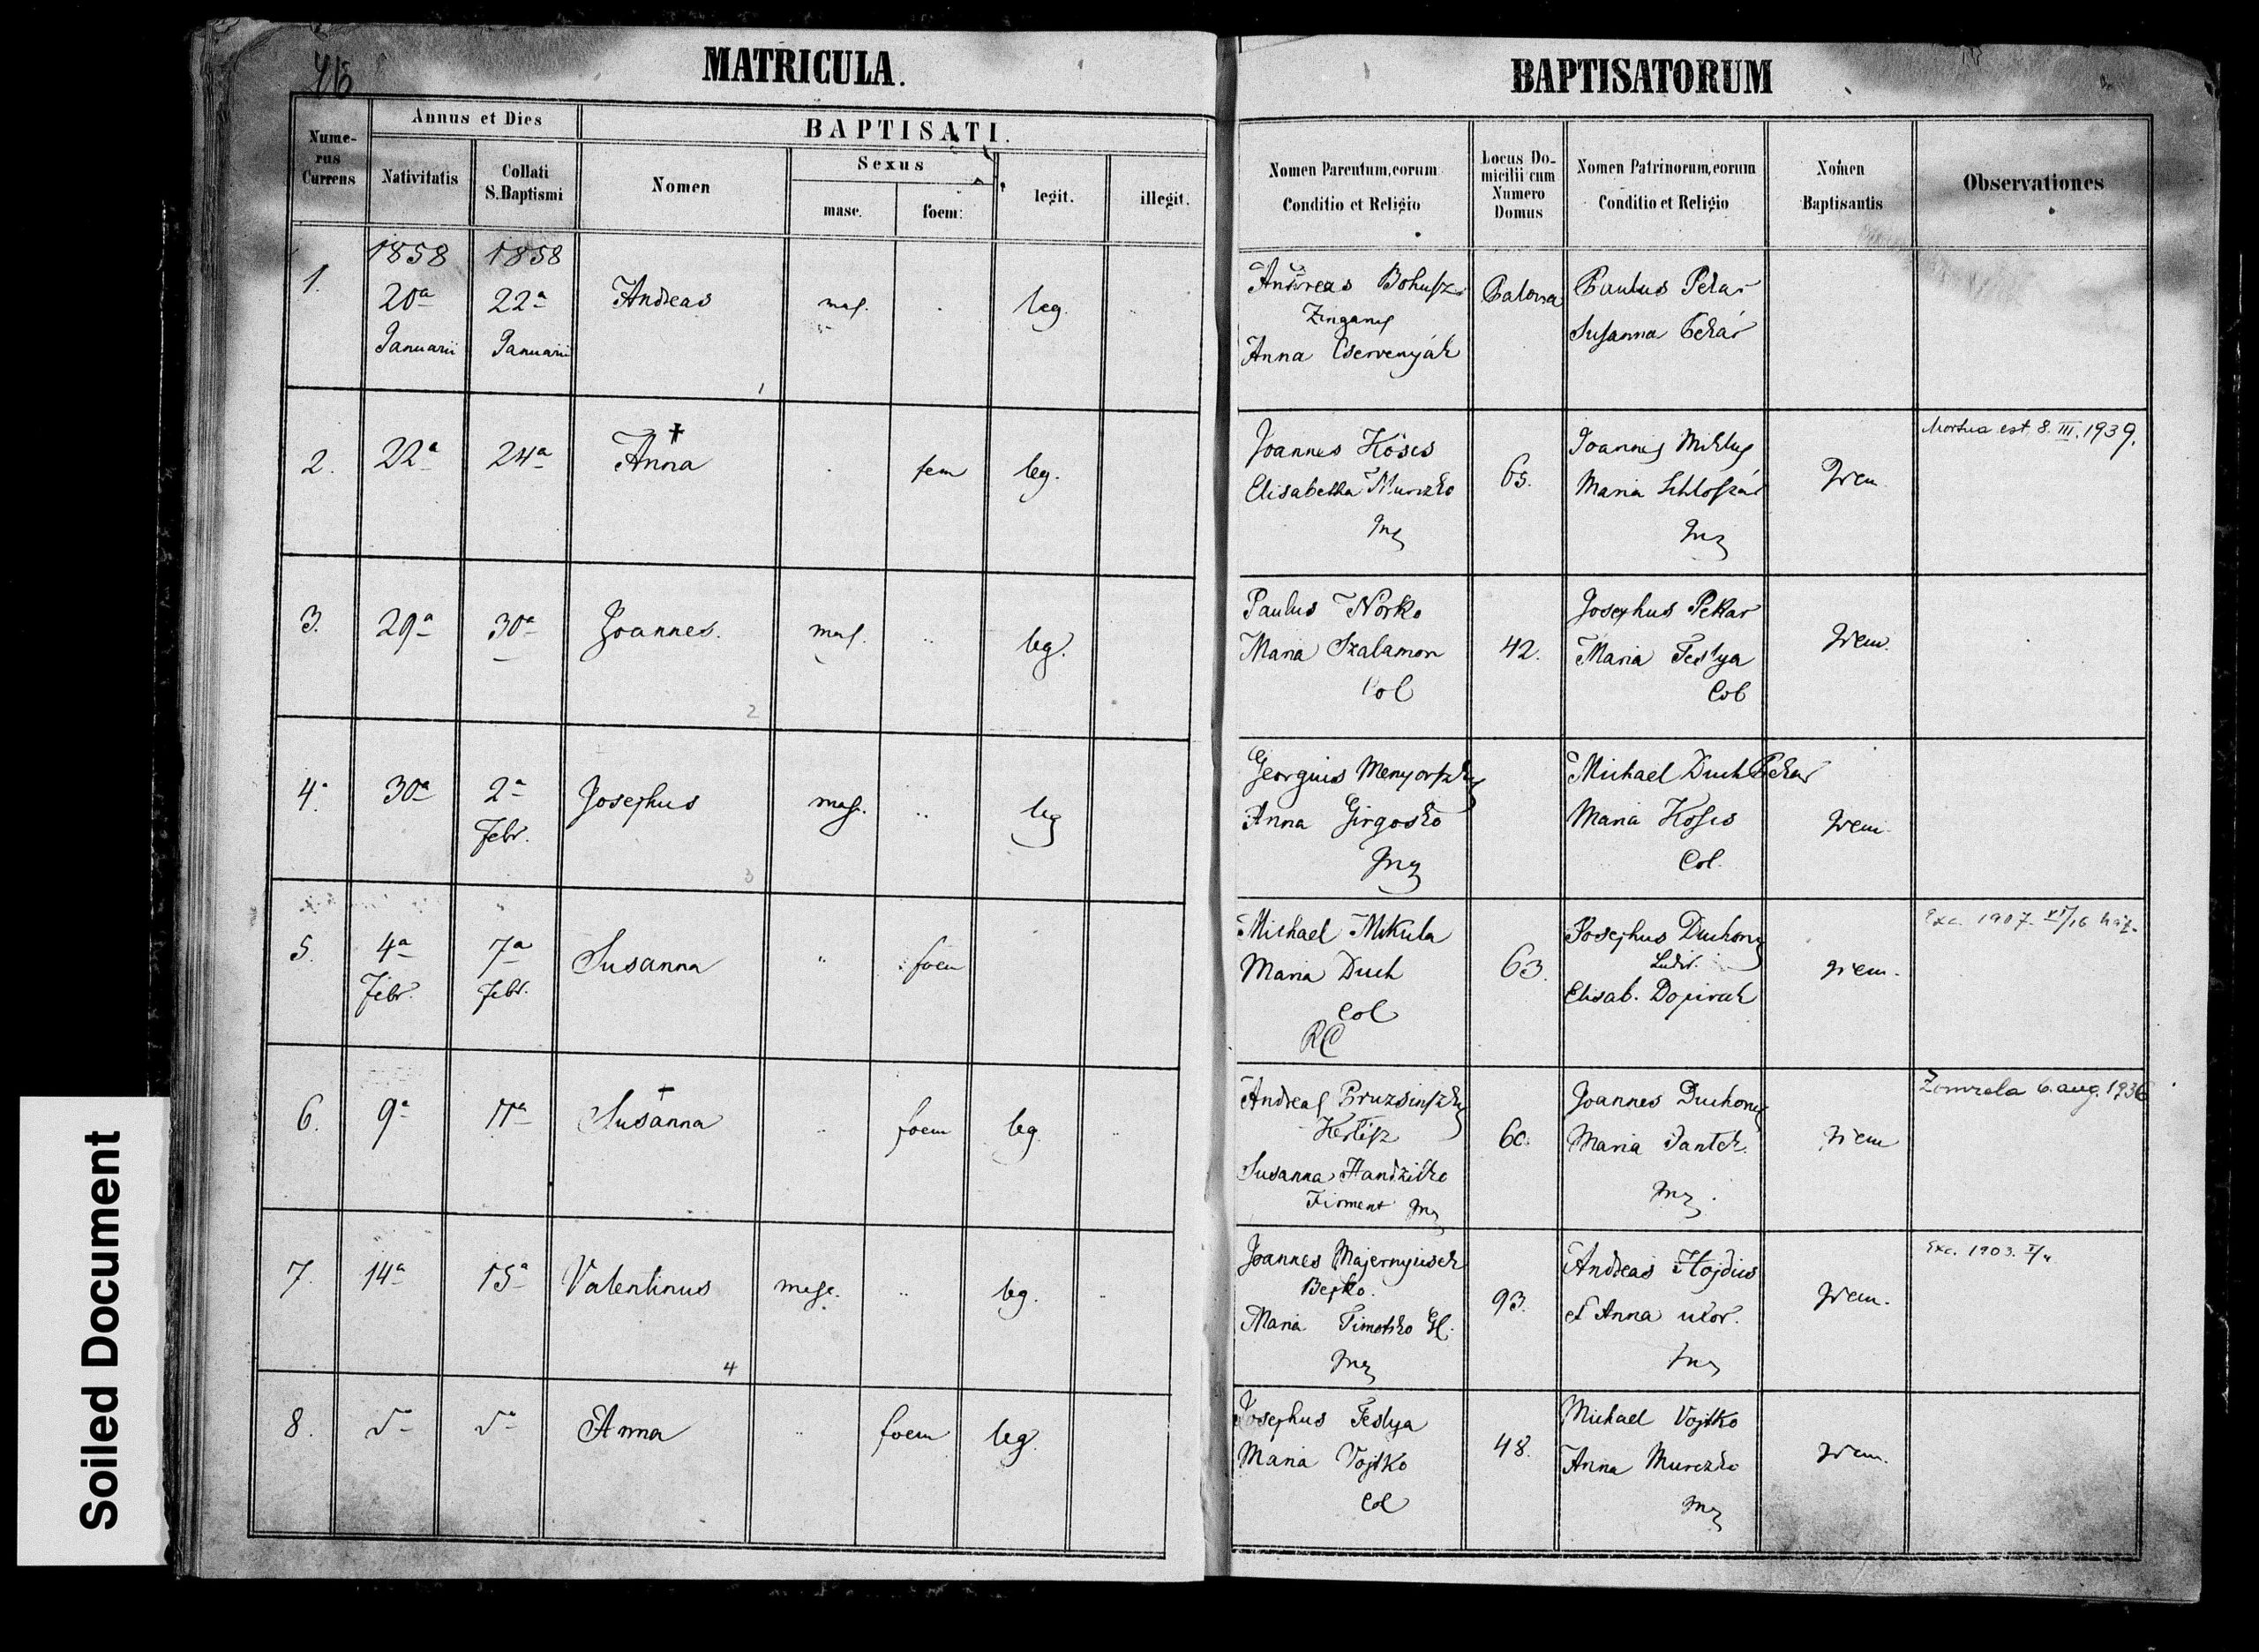 Soiled Document
46
MATRICULA.
BAPTISATORUM
Numerus Currens
Annus et Dies
Nativitatis
Collati S. Baptismi
BAPTISATI.
Nomen
Sexus
masc.
foem:
legit.
illegit.
Nomen Parentum, eorum
Conditio et Religio
Locus Do-
micilii cum
Numero
Domus
Nomen Patrinorum, eorum
Conditio et Religio
Nomen
Baptisantis
Observationes
1.
1858
20a
Januarii
1858
22a
Januarii
Andreas
mas.
leg.
Andreas Bohusz
Anna Cservenyák
Paulus Pekar
Susanna Pekár
1
2.
22a
24a
Anna
fem
leg.
Joannes Köscs
Elisabetha Murczko
65.
Joannes
Maria
Mortua est 8. III. 1939.
3.
29a
30a
Joannes.
mas.
leg.
Paulus Norko
Maria Szalamon
Col
42.
Josephus Pekar
Maria Festya
Col
2
4.
30a
2a
Febr.
Josephus
masc.
leg
Georgius
Anna Girgosko
Michael Duch Pekar
Maria
Col.
3
5.
4a
Febr.
7a
Febr.
Susanna
foem
Michael Mikula
Maria Duch
Col
RC
63.
Josephus Duchony
Elisab.
Exc. 1907 VI/16
6.
9a
11a
Susanna
foem
leg
Andreas
Susanna Handzisko
60.
Joannes Duchony
Maria Jantek.
Zomrela 6. aug. 1936
7.
14a
15a
Valentinus
masc.
leg.
Joannes Majernyicsek
Bepko.
Maria Timotsko
93.
Andreas Hojdics
et Anna uxor.
Exc. 1903.
4
8.
Anna
foem
leg.
Josephus Festya
Maria Vojtko
Col
48.
Michael Vojtko
Anna Murczko